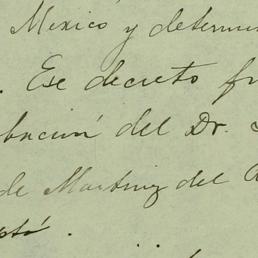 Mexico y determin
. Ese decreto f
bación del Dr.
de Martinez del